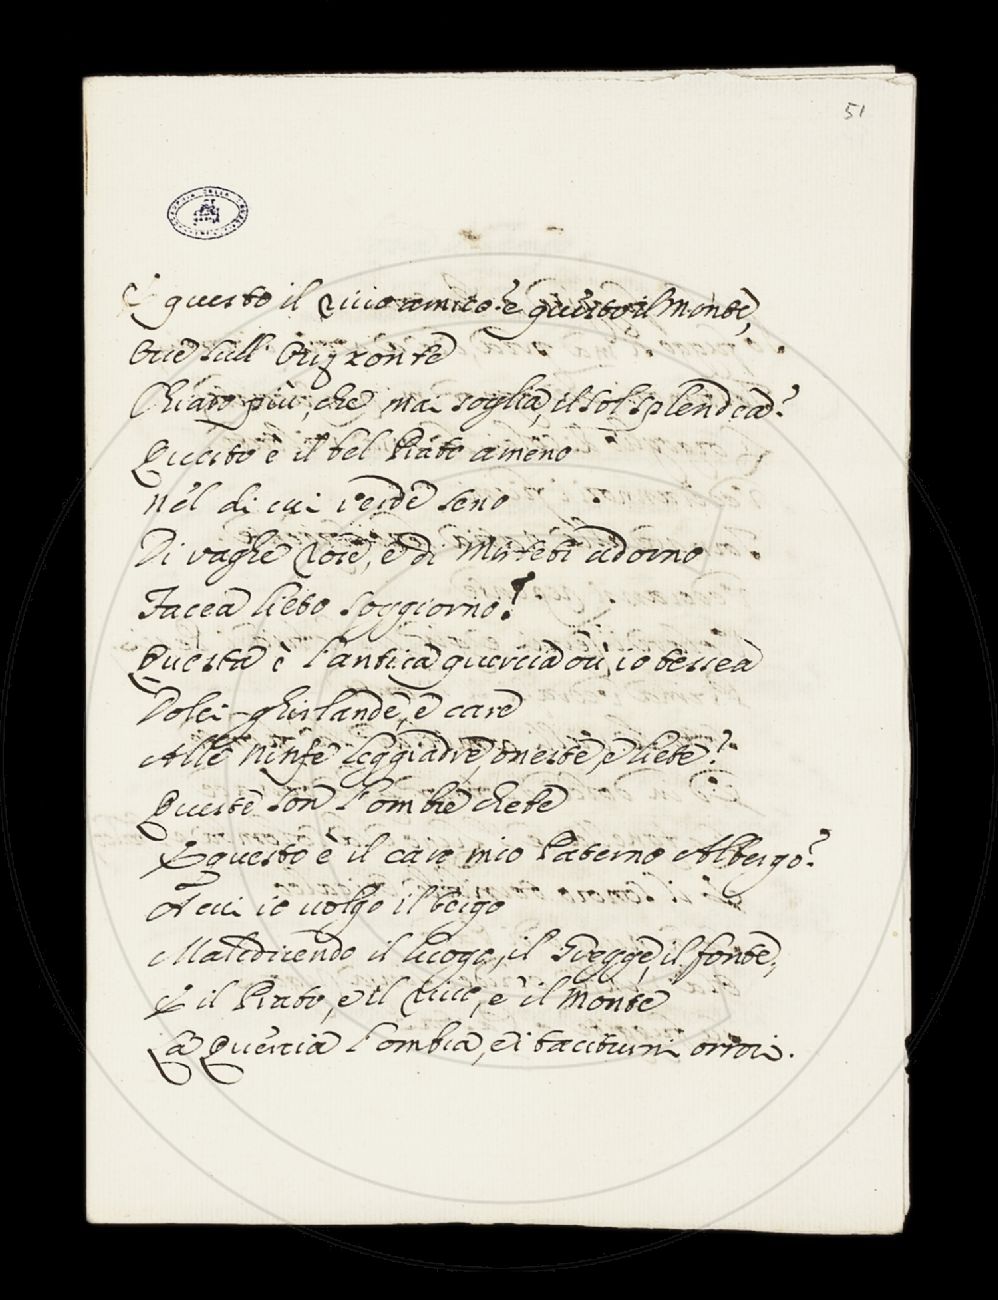 51
E questo il Rivo amico? è questo il Monte,
Ove sull' Orizonte
Chiaro più, che mai soglia, il Sol splendea?
Questo è il bel Prato ameno
Nel di cui verde seno
Di vaghe Rose, e di Mirteti adorno
Facea lieto soggiorno?
Questa è l'antica quercia où, io tessea
Dolci ghirlande, e care
Alle Ninfe leggiadre, oneste, e liete?
Queste son l'ombre chete
E questo è il caro mio Paterno Albergo?
A cui io volgo il tergo
Maledicendo il luogo, il Gregge, il fonte,
E il Prato, e il Rivo, e il Monte
La Quercia l'ombra, e i taciturni orrori.